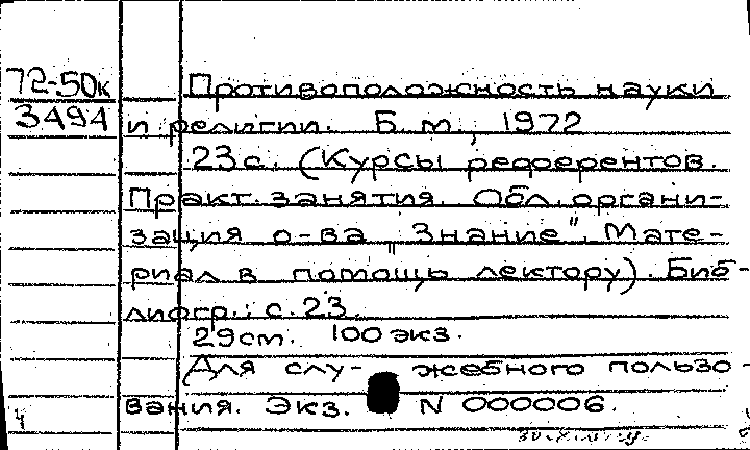 72-50к
3494
Противоположность науки
и религии. Б. м., 1972
23с. (Курсы референтов.
Практ. занятия. Обл. органи-
зация о-ва „Знание". Мате-
риал в помощь лектору). Биб-
лиогр.: с. 23.
29 см. 100 экз.
Для слу- жебного пользо-
вания. Экз. N 000006.
4